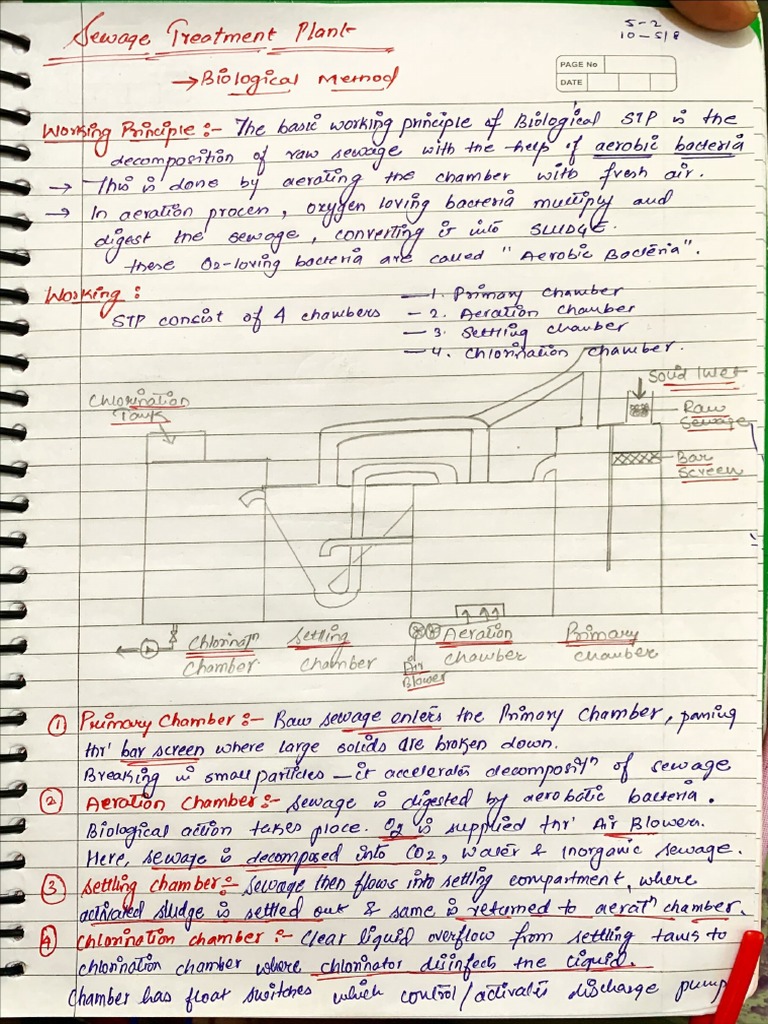 Sewage Treatment Plant
5-2
10-5/8
→ Biological Method
PAGE No
DATE
Working Principle :- The basic working principle of Biological STP is the
decomposition of raw sewage with the help of aerobic bacteria
→ This is done by aerating the chamber with fresh air.
→ In aeration process, oxygen loving bacteria multiply and
digest the sewage, converting it into SLUDGE.
these O2-loving bacteria are called "Aerobic Bacteria".
Working :
STP consist of 4 chambers
— 1. Primary chamber
— 2. Aeration chamber
— 3. Settling chamber
— 4. Chlorination chamber.
Solid Inlet
Chlorination
Tank
Raw
Sewage
Bar
Screen
Chlorinatn
Chamber.
Settling
chamber
Air
Blower
Aeration
chamber
Primary
chamber
① Primary Chamber :- Raw sewage enters the Primary Chamber, passing
thr' bar screen where large solids are broken down.
Breaking in small particles — it accelerates decompositn of sewage
② Aeration Chamber :- Sewage is digested by aerobatic bacteria.
Biological action takes place. O2 is supplied thr' Air Blowers.
Here, sewage is decomposed into CO2, water & inorganic sewage.
③ Settling chamber :- Sewage then flows into settling compartment, where
activated sludge is settled out & same is returned to aeratn chamber.
④ Chlorination chamber :- Clear liquid overflow from settling tanks to
chlorination chamber where chlorinator disinfects the liquid.
Chamber has float switches which control/activates discharge pump